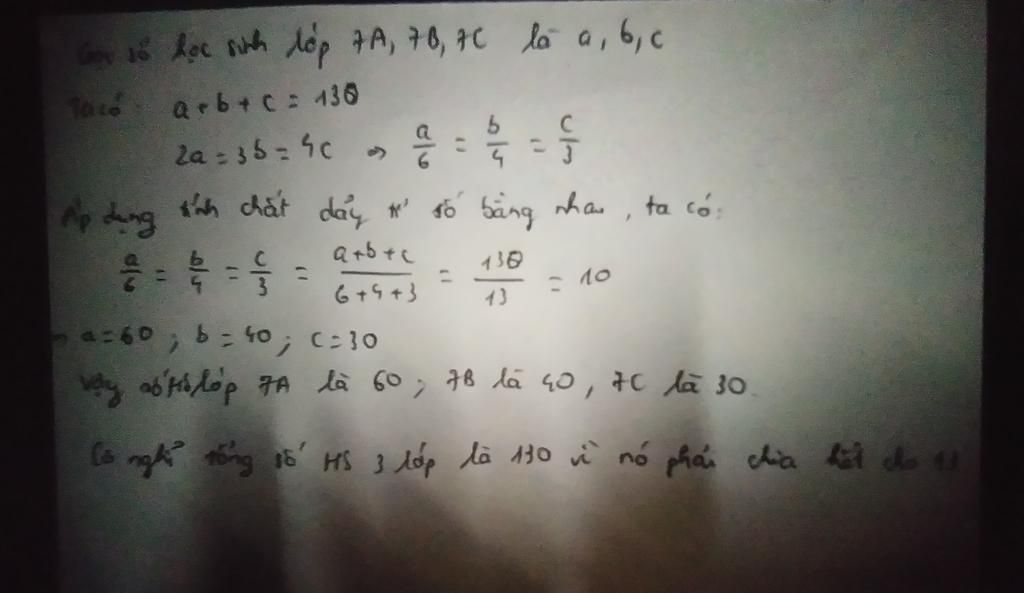 Gọi số học sinh lớp 7A, 7B, 7C là a, b, c
Ta có: a + b + c = 130
2a = 3b = 4c => a/6 = b/4 = c/3
Áp dụng tính chất dãy tỉ số bằng nhau, ta có:
a/6 = b/4 = c/3 = (a+b+c)/(6+4+3) = 130/13 = 10
a=60 ; b=40 ; c=30
Vậy số HS lớp 7A là 60 ; 7B là 40, 7C là 30.
Cô nghĩ tổng số HS 3 lớp là 130 vì nó phải chia hết cho 13